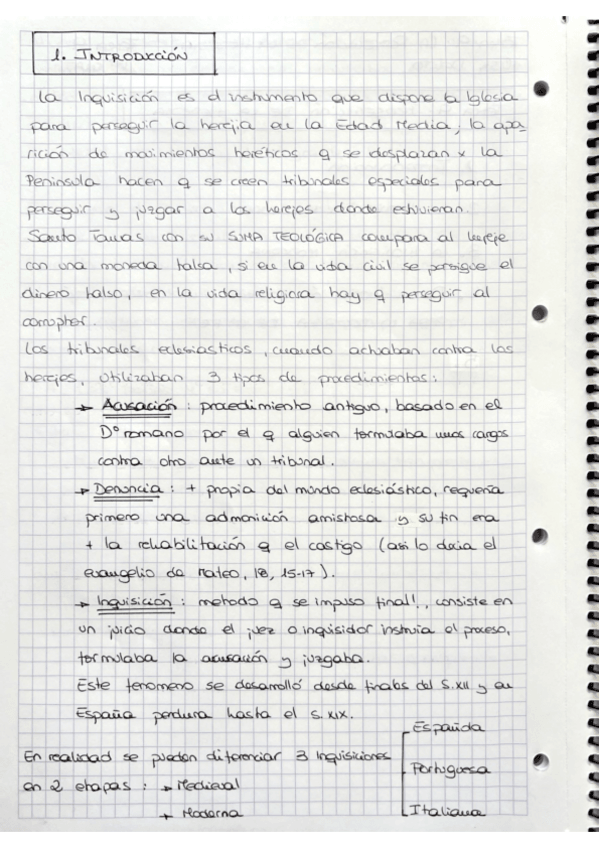 1. INTRODUCCIÓN
La Inquisición es el instrumento que dispone la Iglesia
para perseguir la herejía en la Edad Media, la apa-
rición de movimientos heréticos q se desplazan x la
Península hacen q se creen tribunales especiales para
perseguir y juzgar a los herejes donde estuvieran.
Santo Tomas con su SUMA TEOLÓGICA compara al hereje
con una moneda falsa, si en la vida civil se persigue el
dinero falso, en la vida religiosa hay q perseguir al
corruptor.
Los tribunales eclesiasticos, cuando actuaban contra los
herejes, utilizaban 3 tipos de procedimientos:
→ Acusación: procedimiento antiguo, basado en el
Dº romano por el q alguien formulaba unos cargos
contra otro ante un tribunal.
→ Denuncia: + propia del mundo eclesiástico, requería
primero una admonición amistosa y su fin era
+ la rehabilitación q el castigo (asi lo decia el
evangelio de Mateo, 18, 15-17).
→ Inquisición: metodo q se impuso final!, consiste en
un juicio donde el juez o inquisidor instruia el proceso,
formulaba la acusación y juzgaba.
Este fenomeno se desarrolló desde finales del S.XII y en
España perdura hasta el S.XIX.
En realidad se pueden diferenciar 3 Inquisiciones
Española
Portuguesa
Italiana
en 2 etapas: → Medieval
→ Moderna